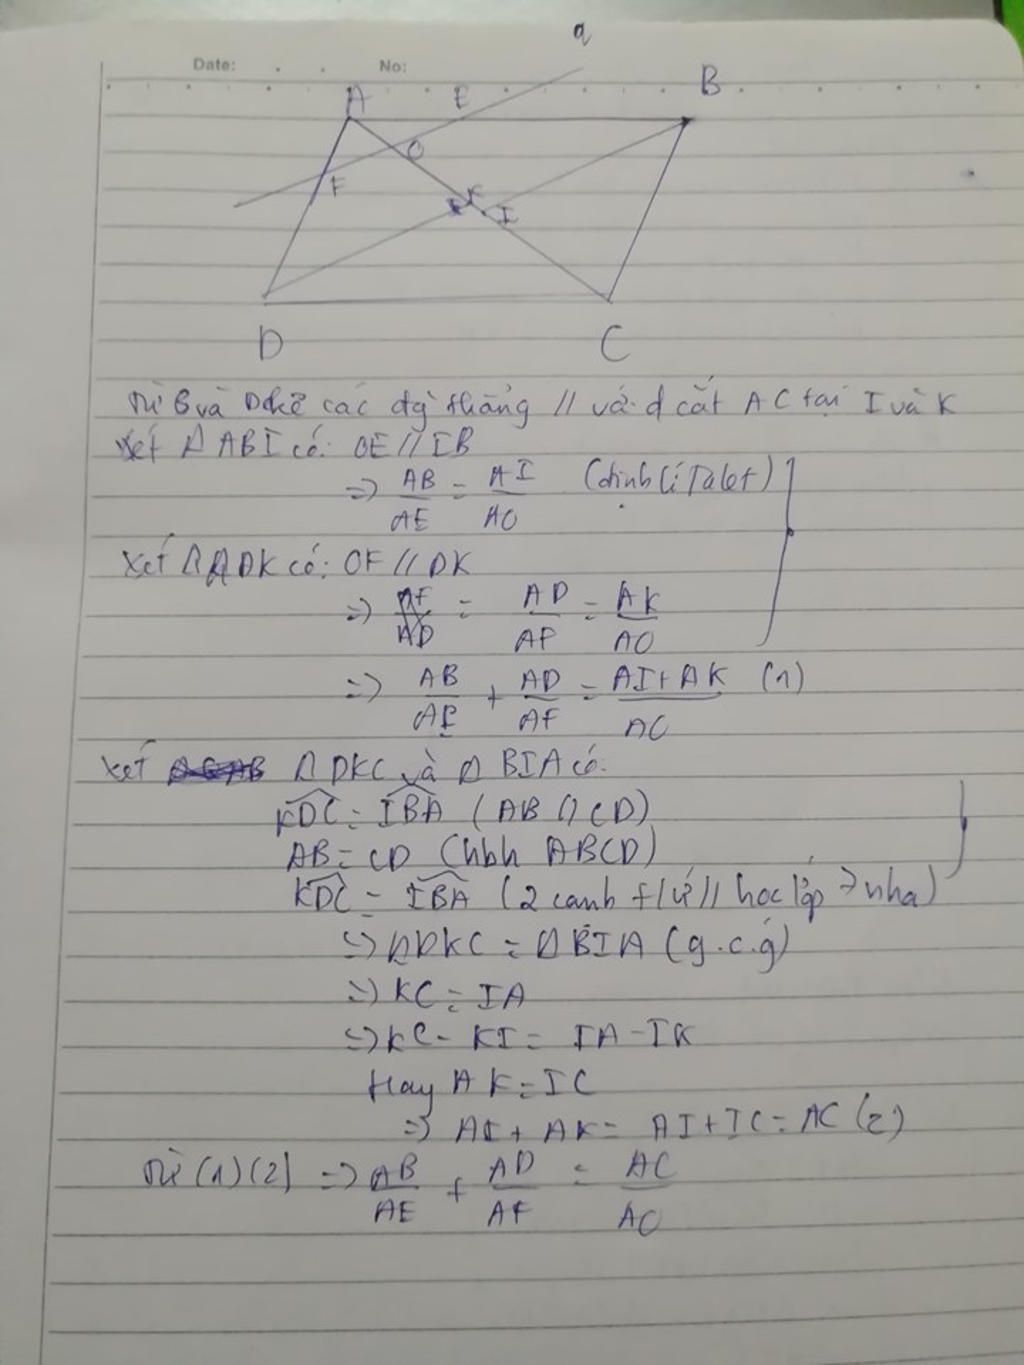 a
Date: . . No:
A E B
O
F K I
D C
Từ B và D kẻ các đg thẳng // với d cắt AC tại I và K
Xét Δ ABI có: OE // IB
=> AB/AE = AI/AO (định lí Talet)
Xét Δ ADK có: OF // DK
=> AD/AF = AK/AO
=> AB/AE + AD/AF = AI+AK/AO (1)
Xét Δ DKC và Δ BIA có:
KDC = IBA (AB // CD)
AB = CD (hbh ABCD)
KDC = IBA (2 cạnh t/ứ // học lớp 7 nha)
=> Δ DKC = Δ BIA (g.c.g)
=> KC = IA
=> KC - KI = IA - IK
Hay AK = IC
=> AI + AK = AI + IC = AC (2)
Từ (1) (2) => AB/AE + AD/AF = AC/AO